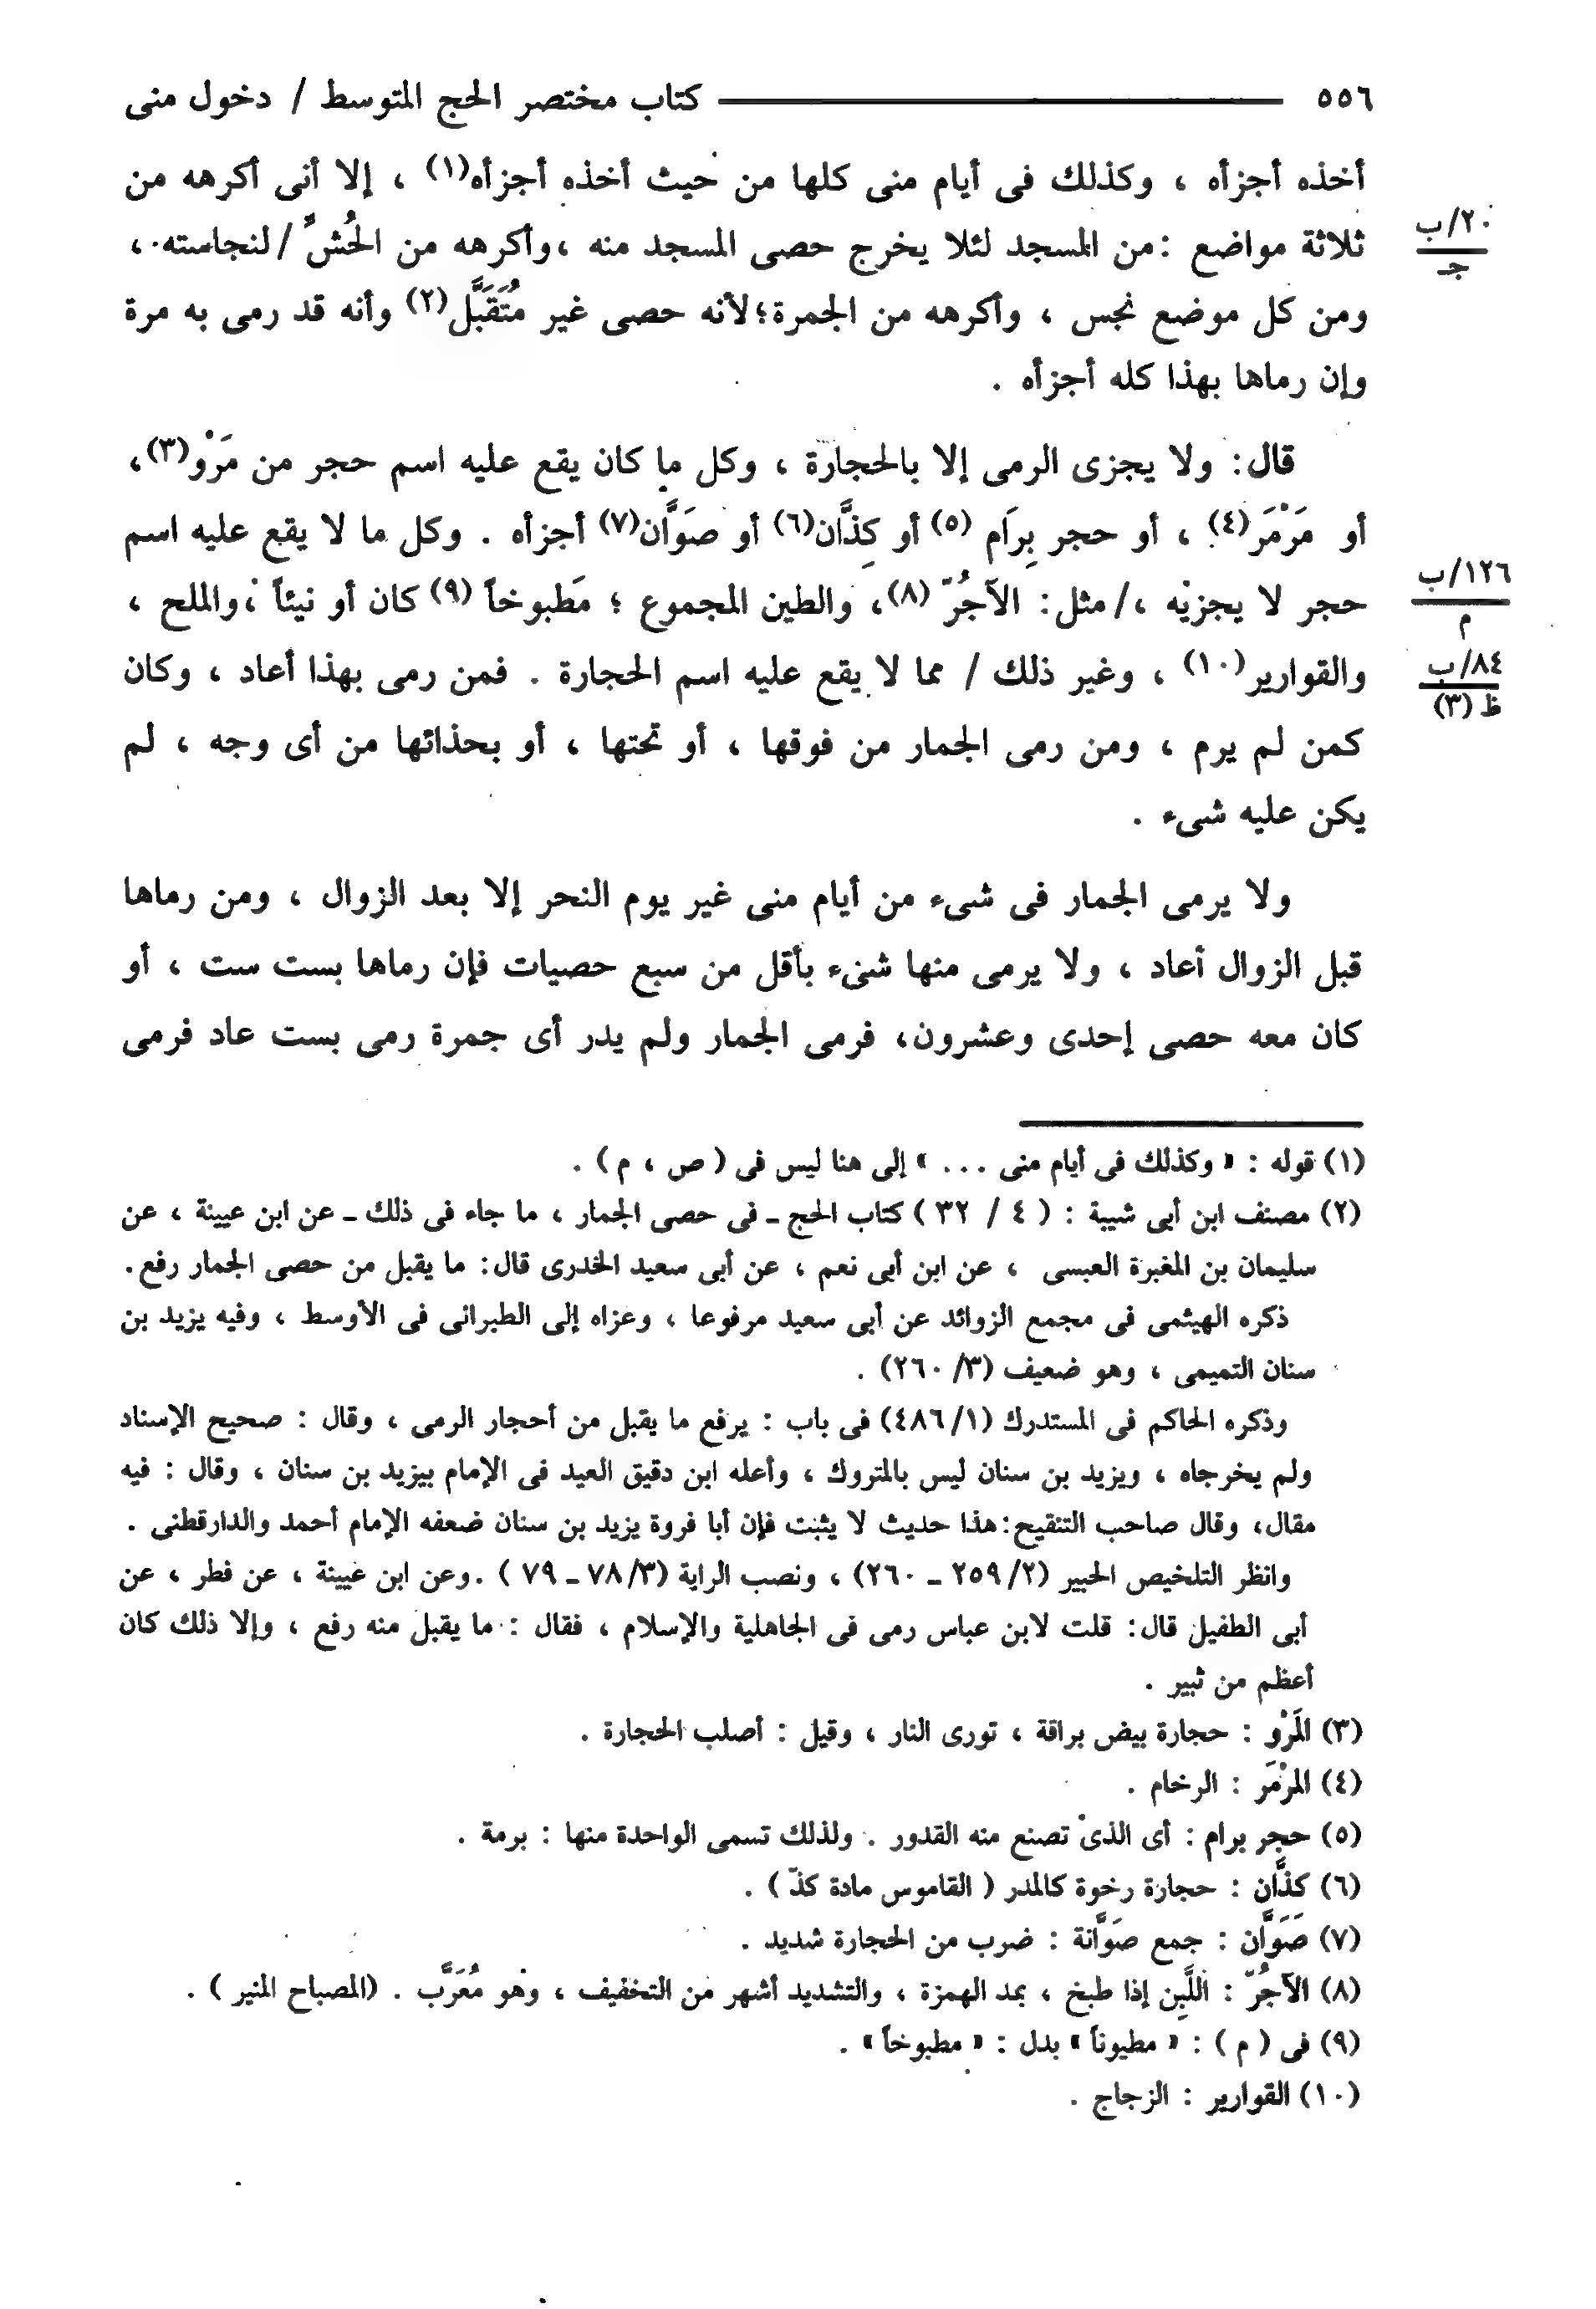 ٥٥٦ كتاب مختصر الحج المتوسط / دخول منى
أخذه أجزأه ، وكذلك فى أيام منى كلها من حيث أخذه أجزأه(١) ، إلا أنى أكرهه من
ثلاثة مواضع : من المسجد لئلا يخرج حصى المسجد منه ، وأكرهه من الحُشِّ / لنجاسته ،
٢٠/ب
جـ
ومن كل موضع نجس ، وأكرهه من الجمرة؛ لأنه حصى غير مُتَقَبَّل(٢) وأنه قد رمى به مرة
وإن رماها بهذا كله أجزأه .
قال : ولا يجزى الرمى إلا بالحجارة ، وكل ما كان يقع عليه اسم حجر من مَرْو(٣)،
أو مَرْمَر(٤) ، أو حجر بِرَام (٥) أو كِذَّان(٦) أو صَوَّان(٧) أجزأه . وكل ما لا يقع عليه اسم
حجر لا يجزيه ،/ مثل : الآجُرّ (٨)، والطين المجموع ؛ مَطبوخاً (٩) كان أو نيئاً ، والملح ،
١٢٦/ب
م
والقوارير(١٠) ، وغير ذلك / مما لا يقع عليه اسم الحجارة . فمن رمى بهذا أعاد ، وكان
٨٤/ب
ظ (٣)
كمن لم يرم ، ومن رمى الجمار من فوقها ، أو تحتها ، أو بحذائها من أى وجه ، لم
يكن عليه شىء .
ولا يرمى الجمار فى شىء من أيام منى غير يوم النحر إلا بعد الزوال ، ومن رماها
قبل الزوال أعاد ، ولا يرمى منها شىء بأقل من سبع حصيات فإن رماها بست ست ، أو
كان معه حصى إحدى وعشرون، فرمى الجمار ولم يدر أى جمرة رمى بست عاد فرمى
(١) قوله : « وكذلك فى أيام منى ... » إلى هنا ليس فى ( ص ، م ) .
(٢) مصنف ابن أبى شيبة : ( ٤ / ٣٢ ) كتاب الحج ـ فى حصى الجمار ، ما جاء فى ذلك ـ عن ابن عيينة ، عن
سليمان بن المغبرة العبسى ، عن ابن أبى نعم ، عن أبى سعيد الخدرى قال : ما يقبل من حصى الجمار رفع.
ذكره الهيثمى فى مجمع الزوائد عن أبى سعيد مرفوعا ، وعزاه إلى الطبرانى فى الأوسط ، وفيه يزيد بن
سنان التميمى ، وهو ضعيف (٣/ ٢٦٠) .
وذكره الحاكم فى المستدرك (١/ ٤٨٦) فى باب : يرفع ما يقبل من أحجار الرمى ، وقال : صحيح الإسناد
ولم يخرجاه ، ويزيد بن سنان ليس بالمتروك ، وأعله ابن دقيق العيد فى الإمام بيزيد بن سنان ، وقال : فيه
مقال، وقال صاحب التنقيح : هذا حديث لا يثبت فإن أبا فروة يزيد بن سنان ضعفه الإمام أحمد والدارقطنى .
وانظر التلخيص الحبير (٢/ ٢٥٩ ـ ٢٦٠) ، ونصب الراية (٣/ ٧٨ ـ ٧٩ ) . وعن ابن عيينة ، عن فطر ، عن
أبى الطفيل قال : قلت لابن عباس رمى فى الجاهلية والإسلام ، فقال : ما يقبل منه رفع ، وإلا ذلك كان
أعظم من ثبير .
(٣) المَرْو : حجارة بيض براقة ، تورى النار ، وقيل : أصلب الحجارة .
(٤) المَرْمَر : الرخام .
(٥) حجر برام : أى الذى تصنع منه القدور . ولذلك تسمى الواحدة منها : برمة .
(٦) كذَّان : حجارة رخوة كالمدر ( القاموس مادة كذّ ) .
(٧) صَوَّان : جمع صَوَّانة : ضرب من الحجارة شديد .
(٨) الآجُرّ : اللَّبِن إذا طبخ ، بمد الهمزة ، والتشديد أشهر من التخفيف ، وهو مُعَرَّب . (المصباح المنير ) .
(٩) فى ( م ) : « مطيوناً » بدل : « مطبوخاً » .
(١٠) القوارير : الزجاج .